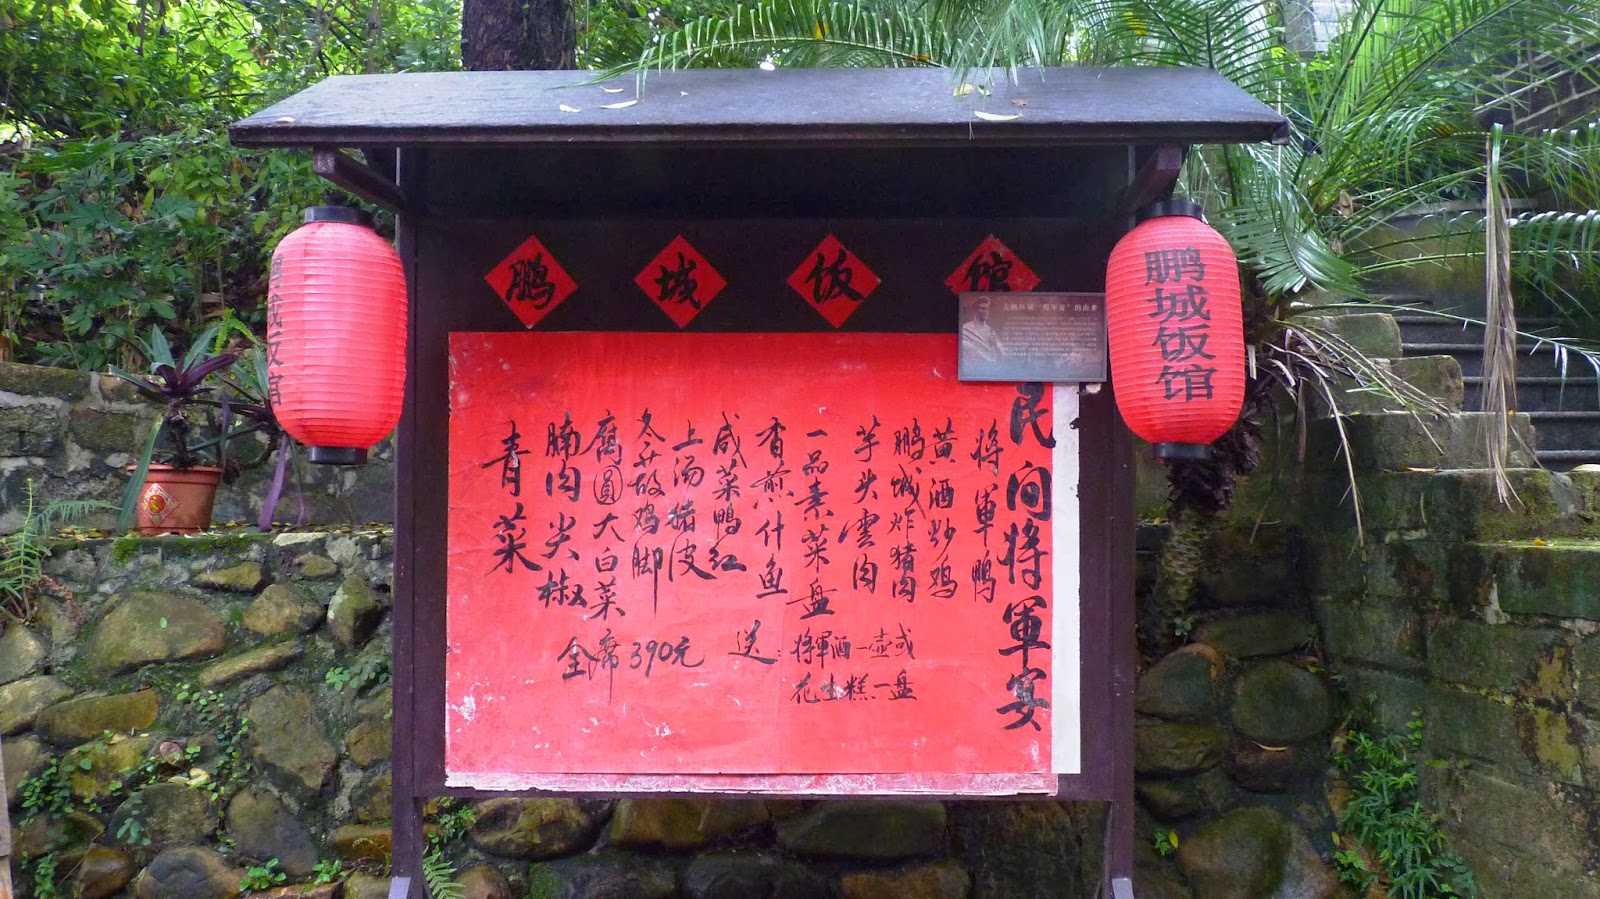 鹏城饭馆
鹏城饭馆
鹏城饭馆
民间将軍宴
将軍鸭
黄酒炒鸡
鹏城炸猪肉
芋头雲肉
一品素菜盘
香煎什鱼
咸菜鸭红
上汤猪皮
冬菇鸡脚
腐圓大白菜
腩肉尖椒
青菜
全席390元 送 将軍酒一壶或
花生糕一盘